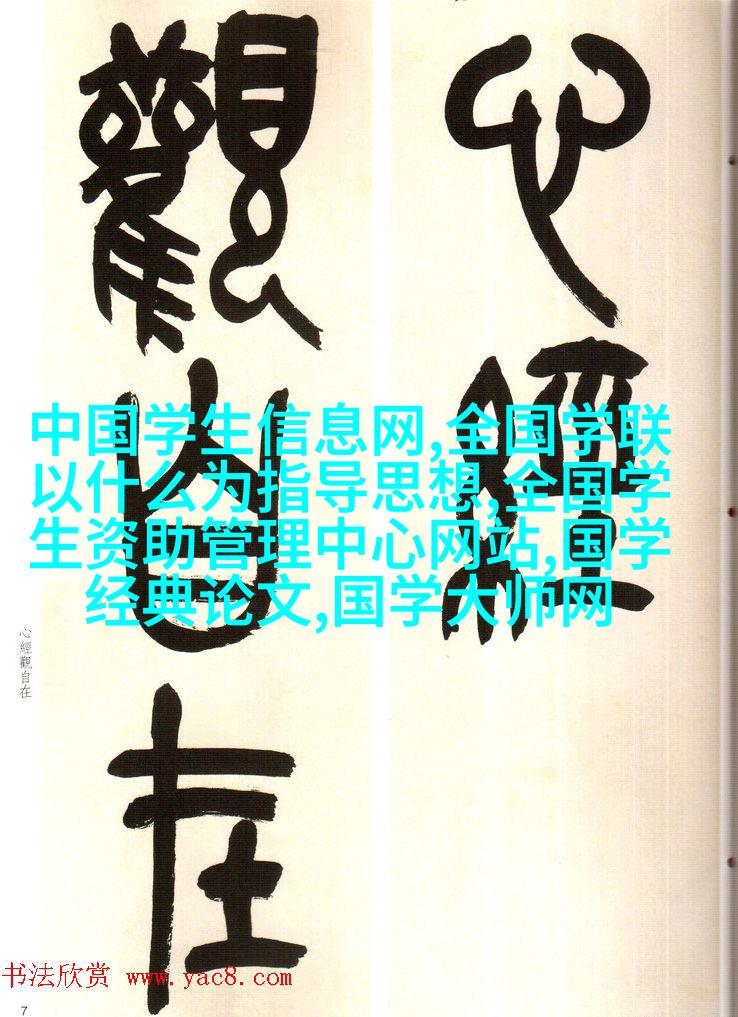 心經
觀自在
中国学生信息网,全国学联
以什么为指导思想,全国学
生资助管理中心网站,国学
经典论文,国学大师网
心經觀自在
书法欣赏 www.yac8.com
7